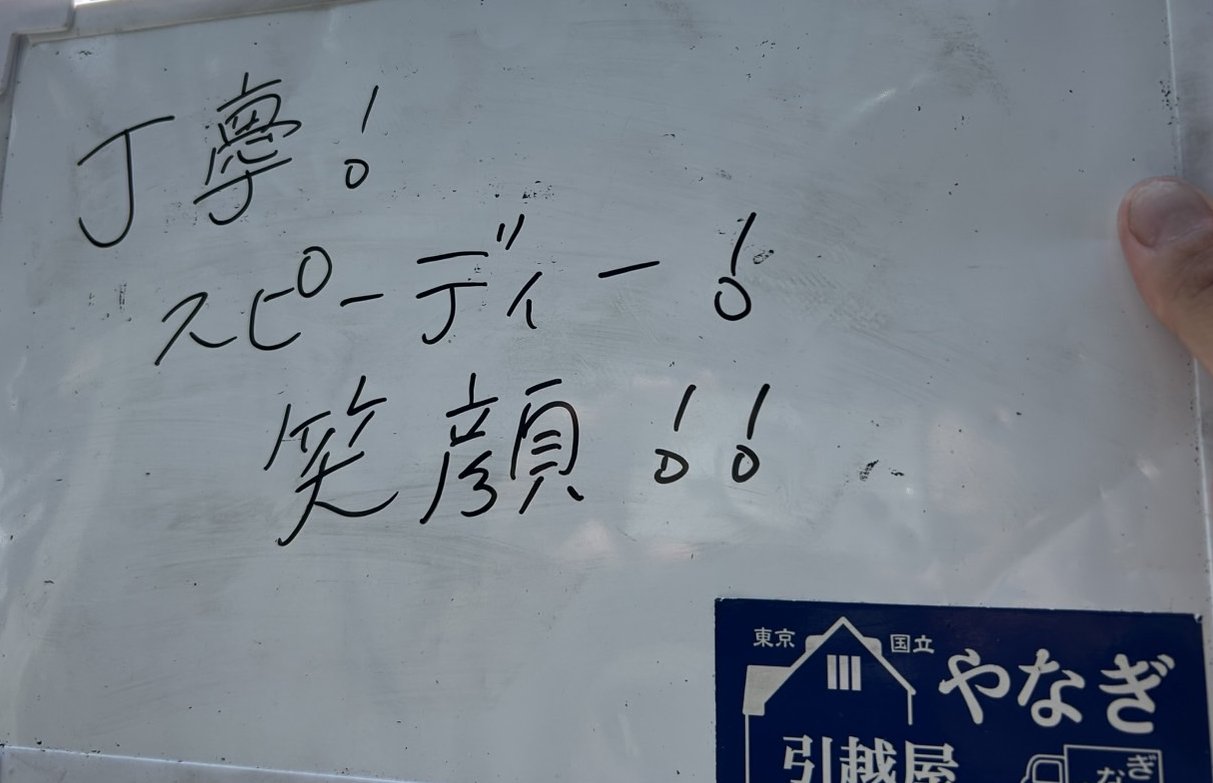 丁寧!
スピーディー!
笑顔!!
東京 国立
やなぎ
引越屋
なぎ